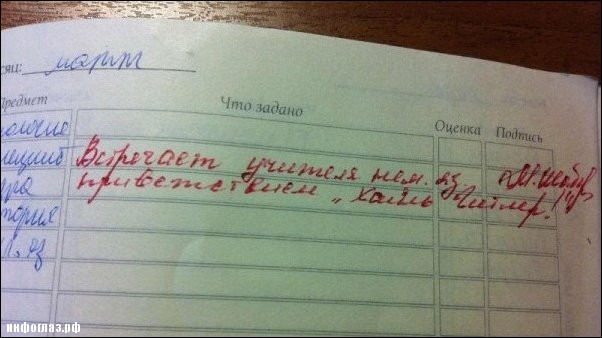 сяц: март
Предмет Что задано Оценка Подпись
ология
Встречает учителя нем. яз
приветствием „Хайль Гитлер!"
тория
инфоглаз.рф